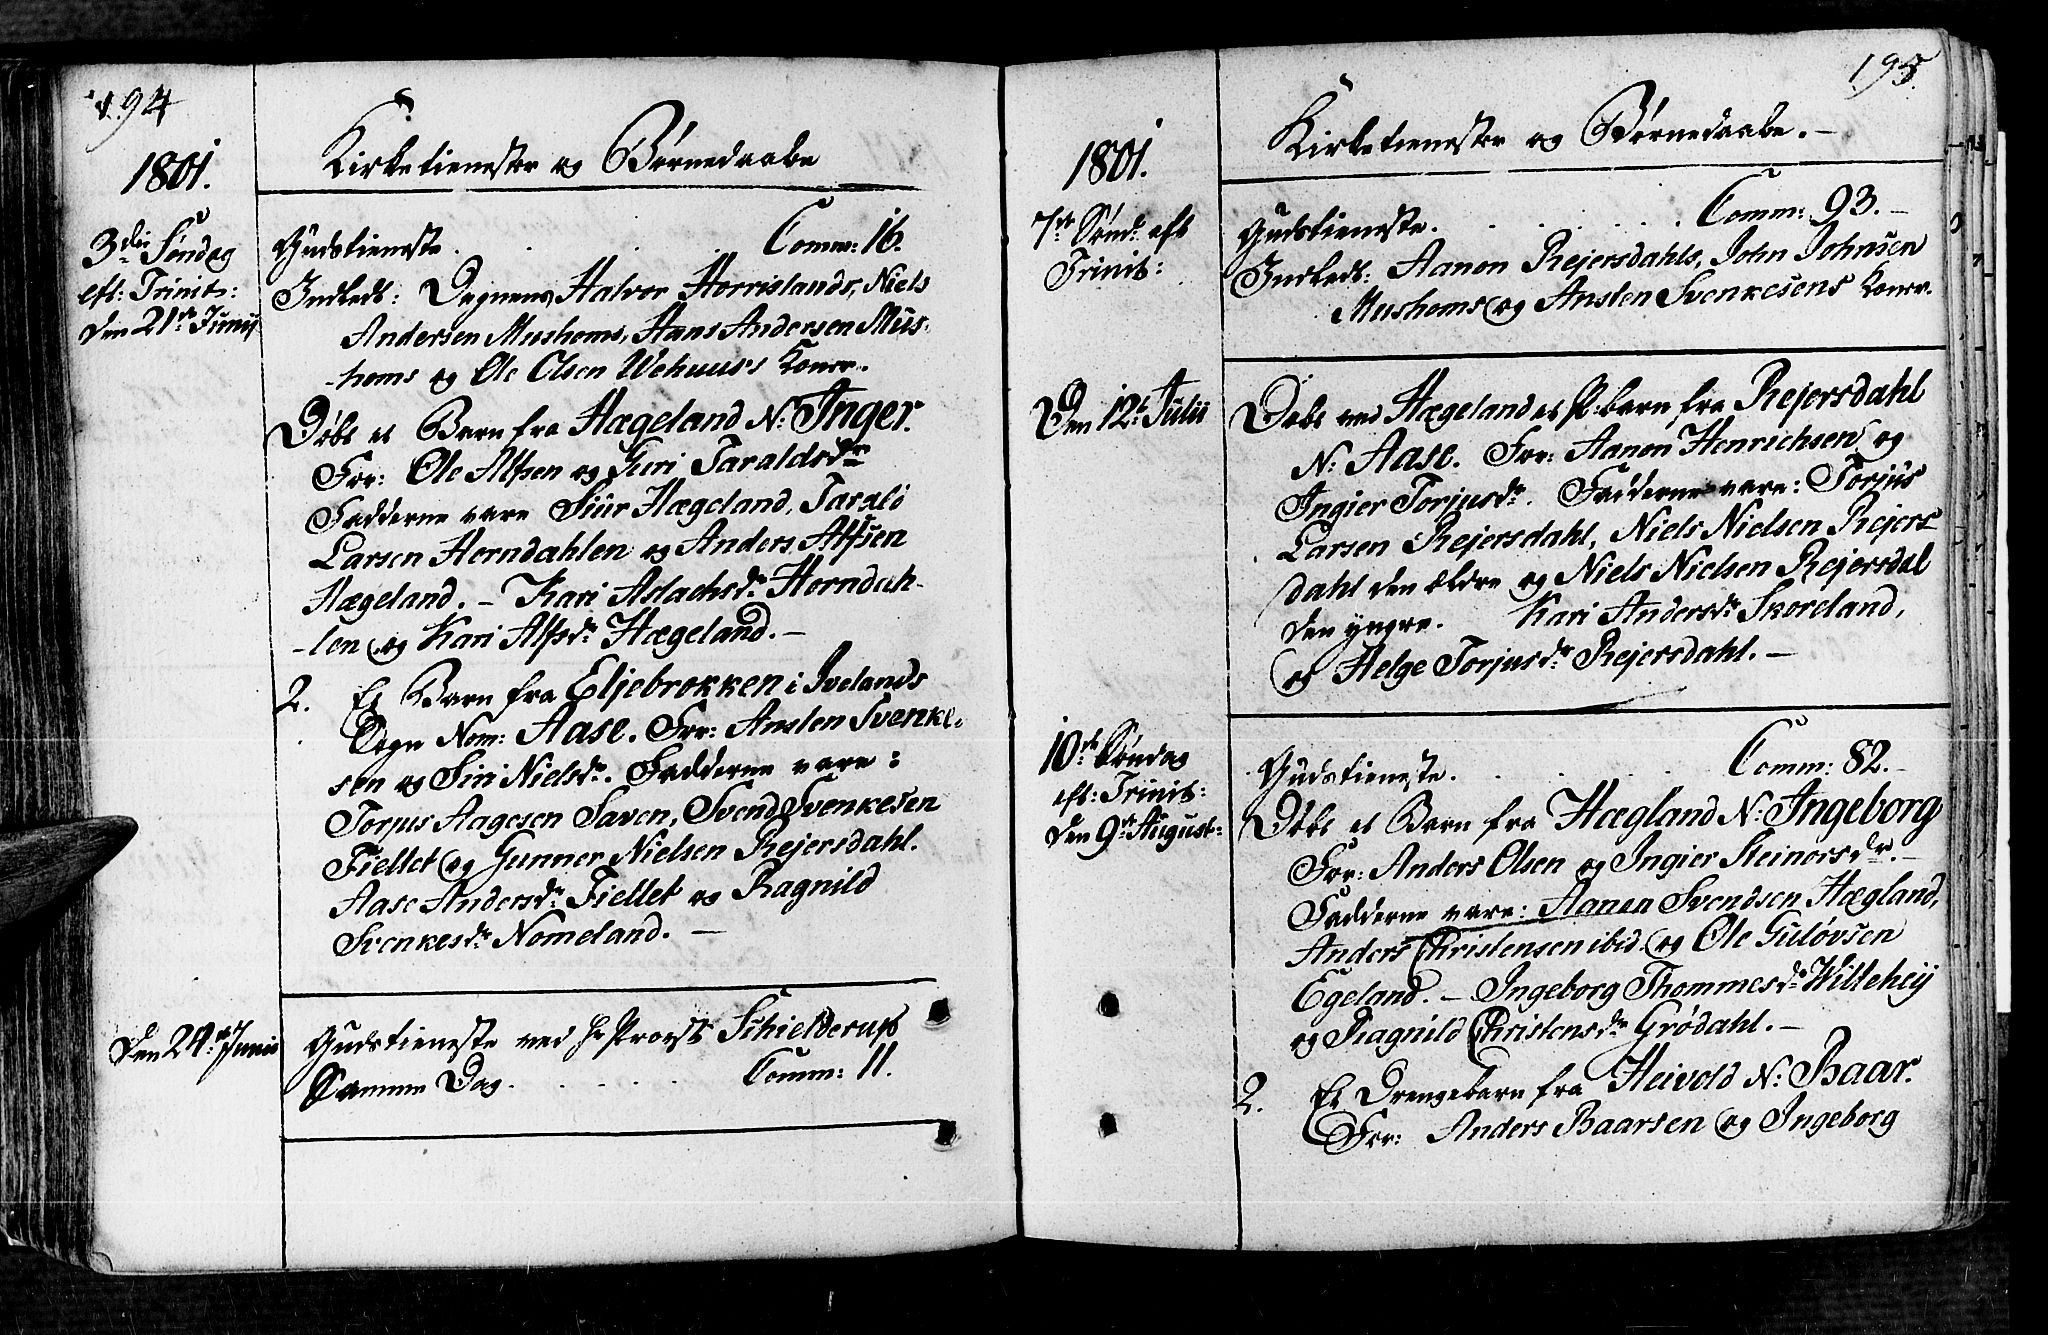 194
1801.
Kirketienester og Børnedaabe
3die Søndag
eft: Trinit:
den 21de Junii
Gudstieneste. Comm: 16.
Indledt: Degnens Halvor Horrislands, Niels
Andersen Mushoms, Hans Andersen Mus-
-homs og Ole Olsen Wehuus's Koner.
Døbt et Barn fra Hægeland N: Inger.
For: Ole Alfsen og Guri Taraldsdr
Fadderne vare Siur Hægeland, Tarald
Larsen Horndahlen og Anders Alfsen
Hægeland. – Kari Aslachsdr Horndah-
-len og Kari Alfsdr Hægeland. –
2. Et Barn fra Eljebrokken i Ivelands
Sogn Nom: Aase. For: Ansten Svenke-
sen og Siri Nielsdr. Fadderne vare:
Torjus Aagesen Saven, Svend Svenkesen
Fiellet og Gunner Nielsen Rejersdahl.
Aase Andersdr Fiellet og Ragnild
Svenkesdr Nomeland. –
den 24de Junii
Gudstieneste ved Hr Provst Schielderup
Samme Dag. Comm: 11.
195.
1801.
Kirketienester og Børnedaabe. –
7de Sønd: eft
Trinit:
Gudstieneste. Comm: 93. –
Indledt: Aanon Rejersdahls, John Johnsen
Mushoms og Ansten Svenkesens Koner.
Den 12te Julii
Døbt ved Hægeland et P:barn fra Rejersdahl
N: Aase. For: Aanon Henrichsen og
Ingier Torjusdr. Fadderne vare: Torjus
Larsen Rejersdahl, Niels Nielsen Rejers-
dahl den ældre og Niels Nielsen Rejersdal
den yngre. Kari Andersdr Skoreland,
og Helge Torjusdr Rejersdahl. –
10de Søndag
eft: Trinit:
den 9de August:
Gudstieneste. Comm: 82. –
Døbt et Barn fra Hægland N: Ingeborg
For: Anders Olsen og Ingier Steinorsdr. –
Fadderne vare: Aanon Svendsen Hægland,
Anders Christensen ibid og Ole Guløvsen
Egeland. – Ingeborg Thommesdr Wittehej
og Ragnild Christensdr Grødahl. –
2. Et Drengebarn fra Heivold N: Baar.
For: Anders Baarsen og Ingeborg